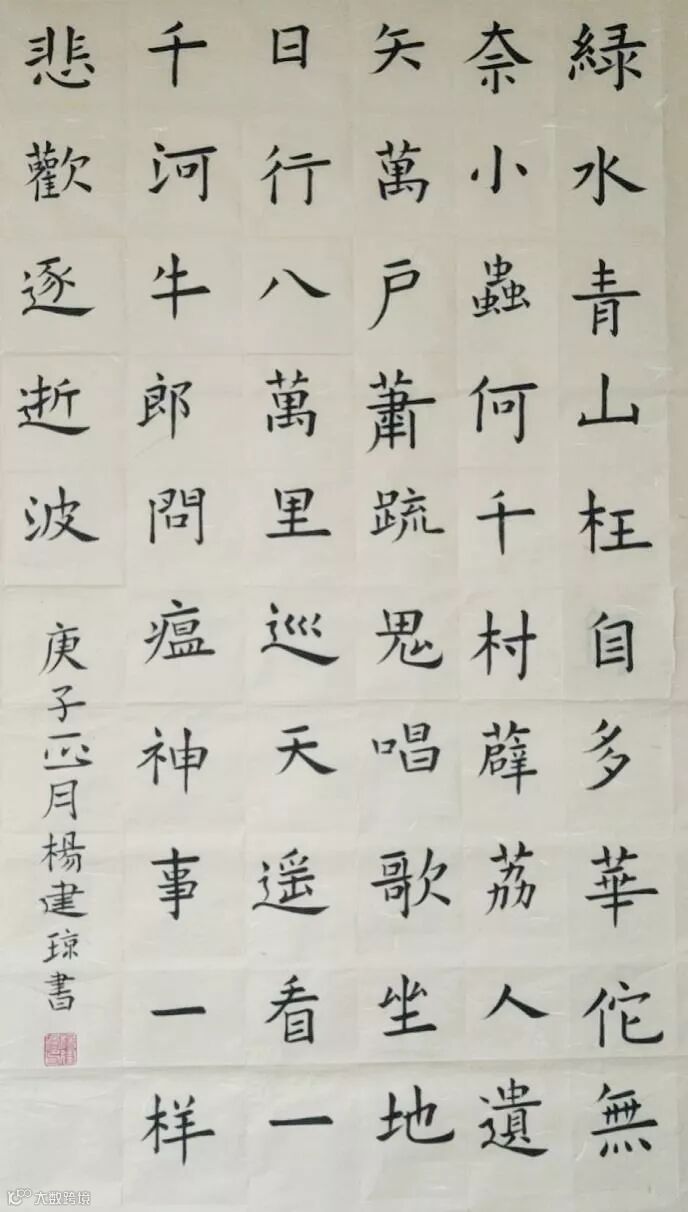 緑水青山枉自多華佗無
奈小蟲何千村薜荔人遺
矢萬戶蕭疏鬼唱歌坐地
日行八萬里巡天遥看一
千河牛郎問瘟神事一样
悲歡逐逝波
庚子正月楊建琼書
大数跨境